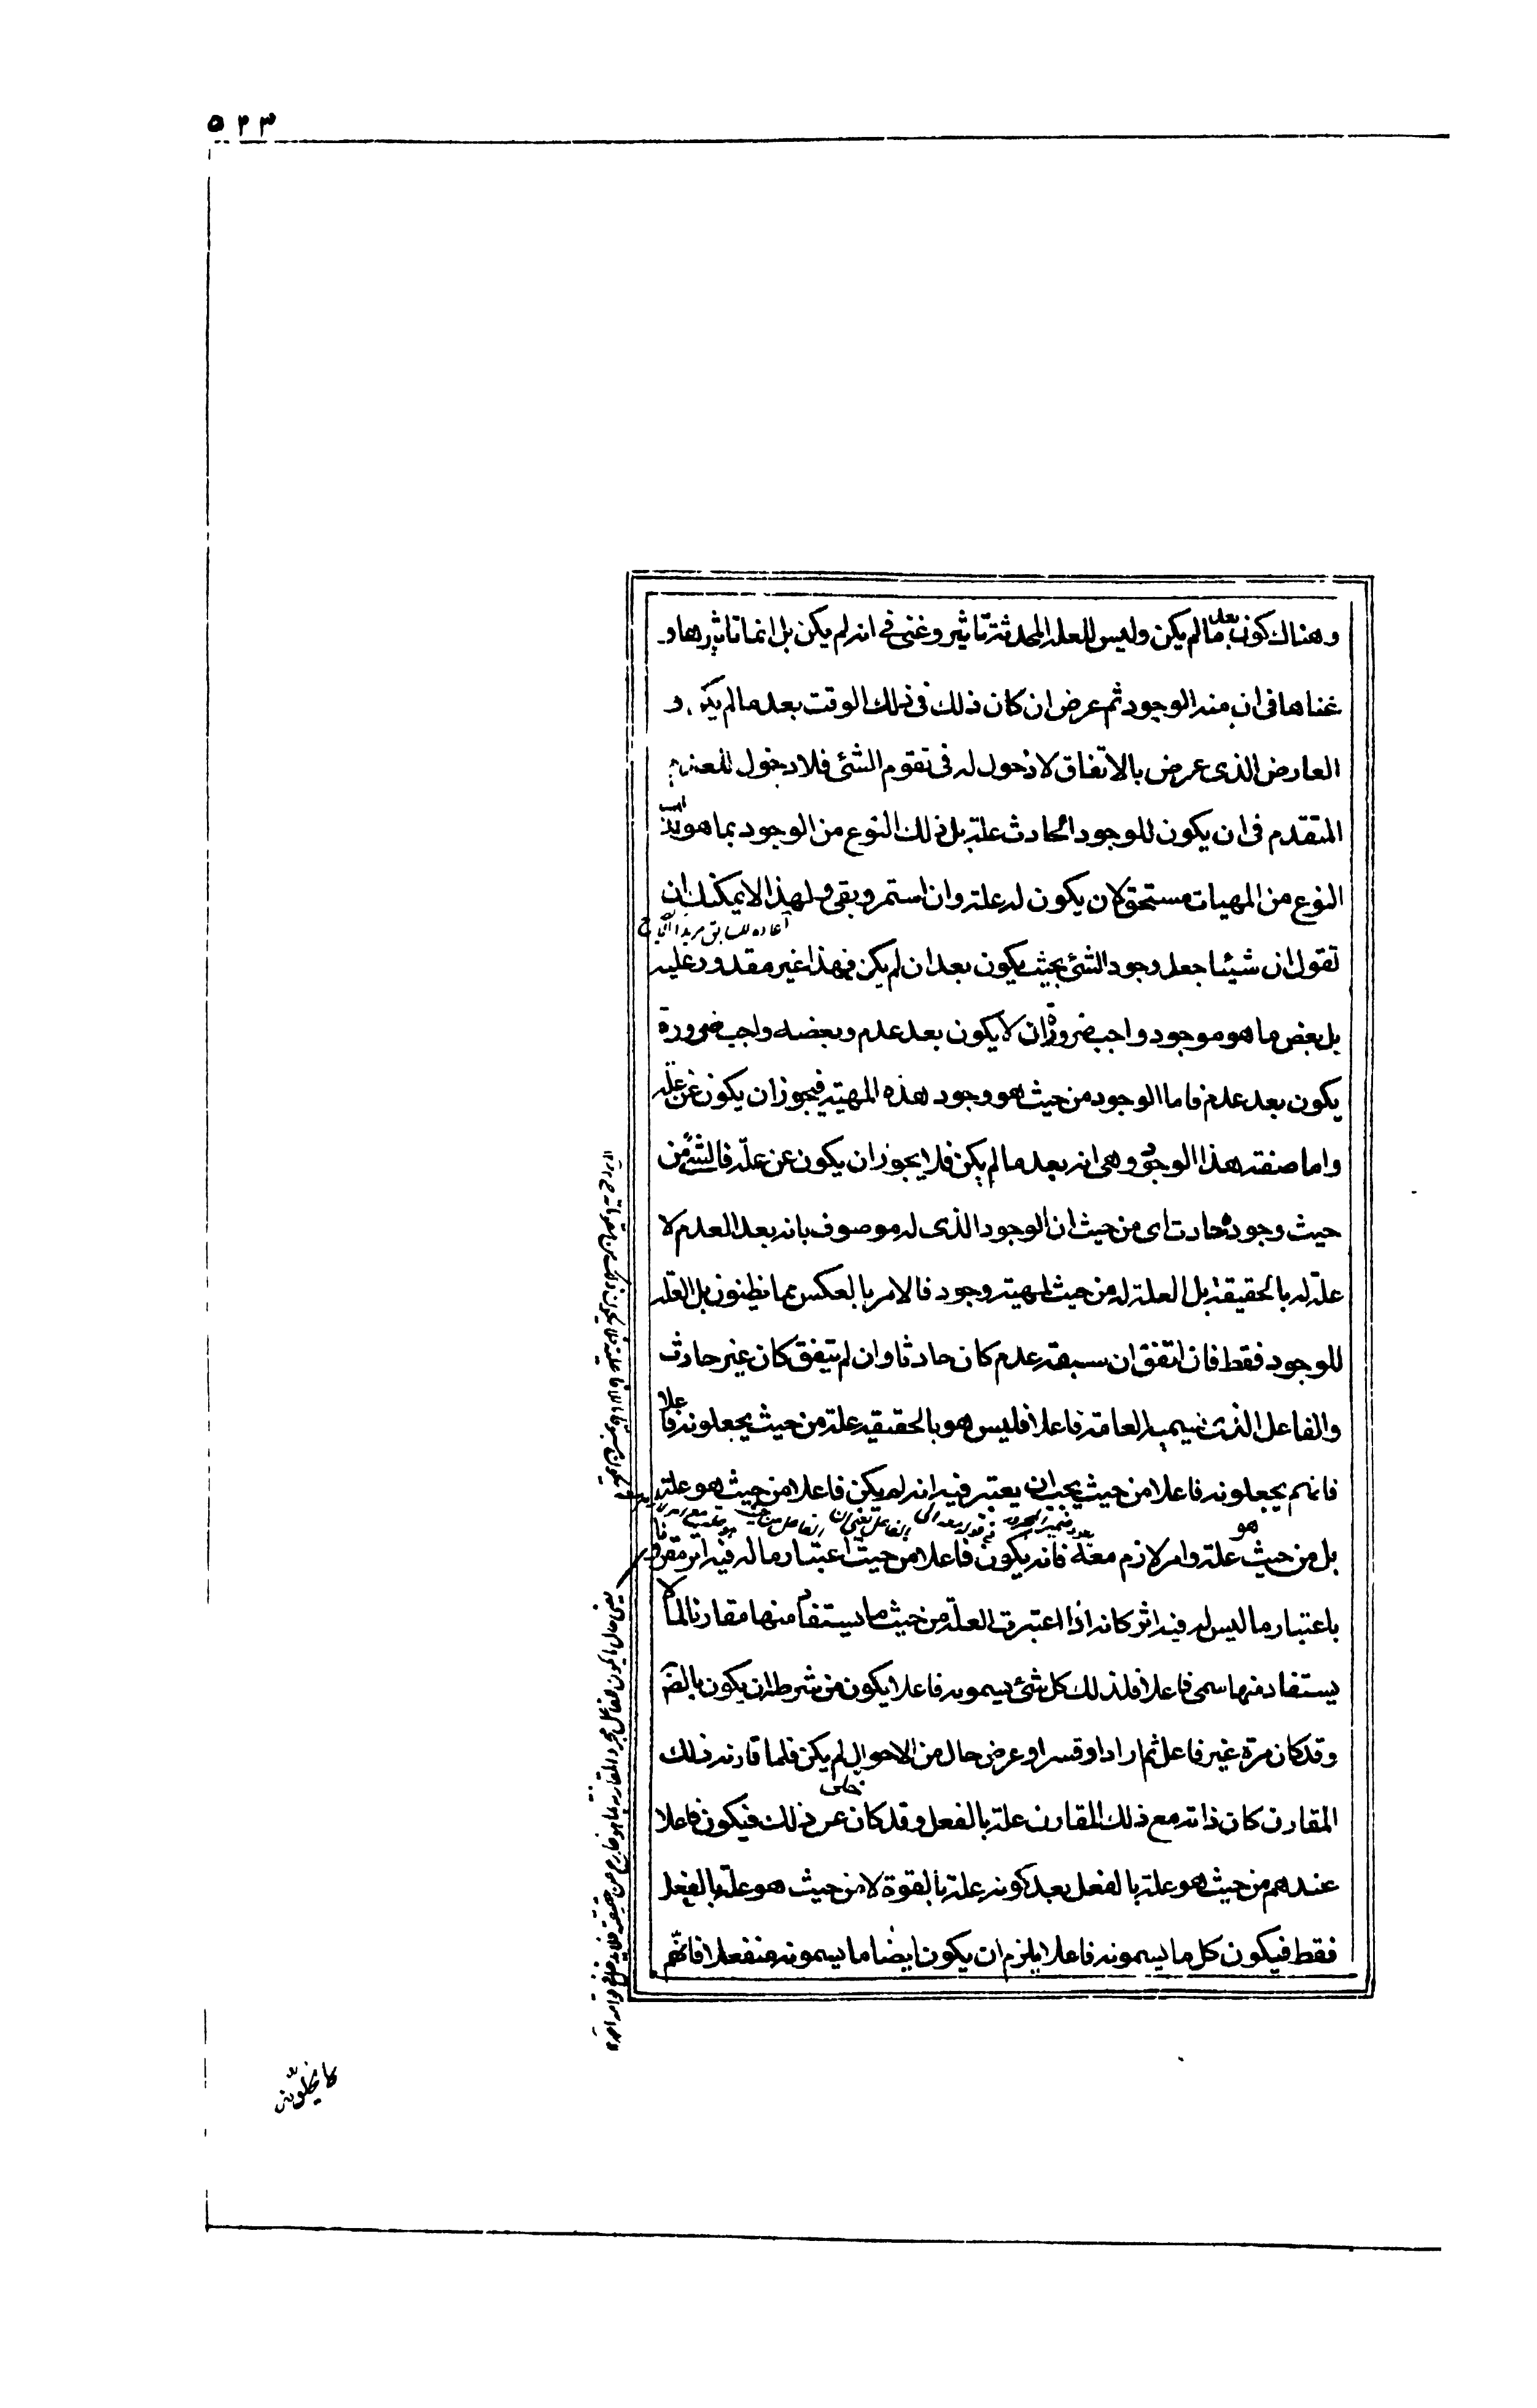 ٥٢٣
وهناك كون بعد ما لم يكن وليس للعلة المحدثة تاثير وغنى في انه لم يكن بل انما تاثيرها و
غناها في ان منه الوجود ثم عرض ان كان ذلك في ذلك الوقت بعد ما لم يكن و
العارض الذى عرض بالاتفاق لا دخول له فى تقوم الشئ فلا دخول للعدم
المتقدم فى ان يكون للوجود الحادث علة بل ذلك النوع من الوجود بما هو لذلك
النوع من المهيات مستحق لان يكون له علة وان استمر وبقى ولهذا لا يمكنك ان
تقول ان شيئا جعل وجود الشئ بحيث يكون بعد ان لم يكن فهذا غير مقدور عليه
بل بعض ما هو موجود واجب ضرورة ان لا يكون بعد عدم وبعضه واجب ضرورة
يكون بعد عدم فاما الوجود من حيث هو وجود هذه المهية فيجوز ان يكون عن علة
واما صفة هذا الوجود وهى انه بعد ما لم يكن فلا يجوز ان يكون عن علة فالشئ من
حيث وجوده حادث اى من حيث ان الوجود الذى له موصوف بانه بعد العدم لا
علة له بالحقيقة بل العلة له من حيث للمهية وجود فالامر بالعكس مما يظنون بل العلة
للوجود فقط فان اتفق ان سبقه عدم كان حادثا وان لم يتفق كان غير حادث
والفاعل الذى يسميه العامة فاعلا فليس هو بالحقيقة علة من حيث يجعلونه فاعلا
فانهم يجعلونه فاعلا من حيث يجب ان يعتبر فيه انه لم يكن فاعلا من حيث هو علة
بل من حيث هو علة وامر لازم معه فانه يكون فاعلا من حيث اعتبار ما له فيه اثر مقرونا
باعتبار ما ليس له فيه اثر كانه اذا اعتبرت العلة من حيث ما يستفاد منها مقارنا لما لا
يستفاد منها سمى فاعلا فلذلك كل شئ يسمونه فاعلا يكون من شرطه ان يكون بالضرورة
وقد كان مرة غير فاعل ثم اراد او قسر او عرض حال من الاحوال لم يكن فلما قارنه ذلك
المقارن كان ذاته مع ذلك المقارن علة بالفعل وقد كان خلى عن ذلك فيكون فاعلا
عندهم من حيث هو علة بالفعل بعد كونه علة بالقوة لا من حيث هو علة بالفعل
فقط فيكون كل ما يسمونه فاعلا يلزم ان يكون ايضا ما يسمونه منفعلا فانهم